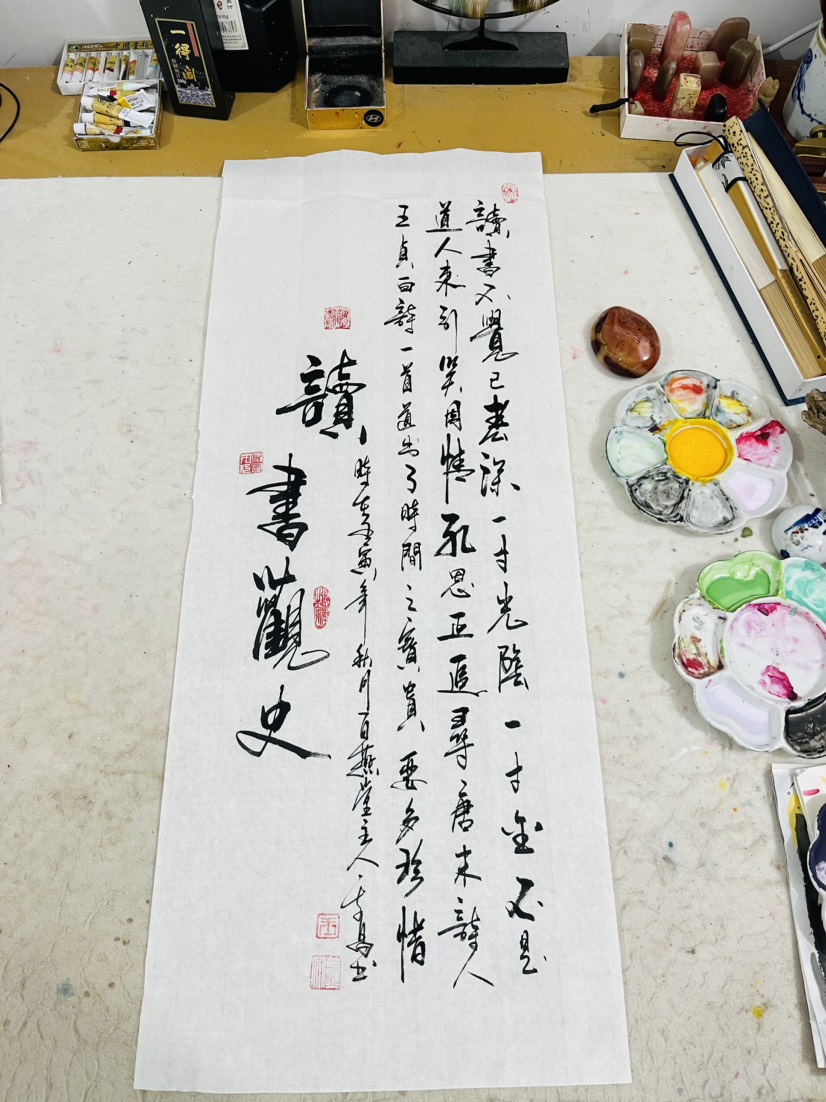 一得閣
讀書不覺已春深一寸光陰一寸金不是
道人來引笑周情孔思正追尋唐末詩人
王貞白詩一首道出了時間之寶貴要多珍惜
時在寅年秋月百燕堂主人書
讀書觀史